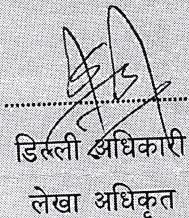 डिल्ली अधिकारी
लेखा अधिकृत